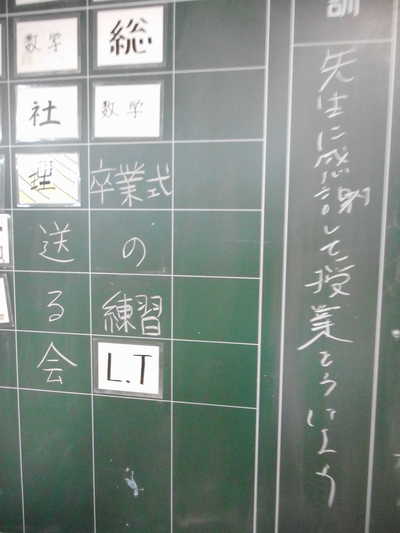 訓
先生に感謝して授業をうけよう
総
数学
卒業式
の
練習
L.T
数学
社
理
送
る
会